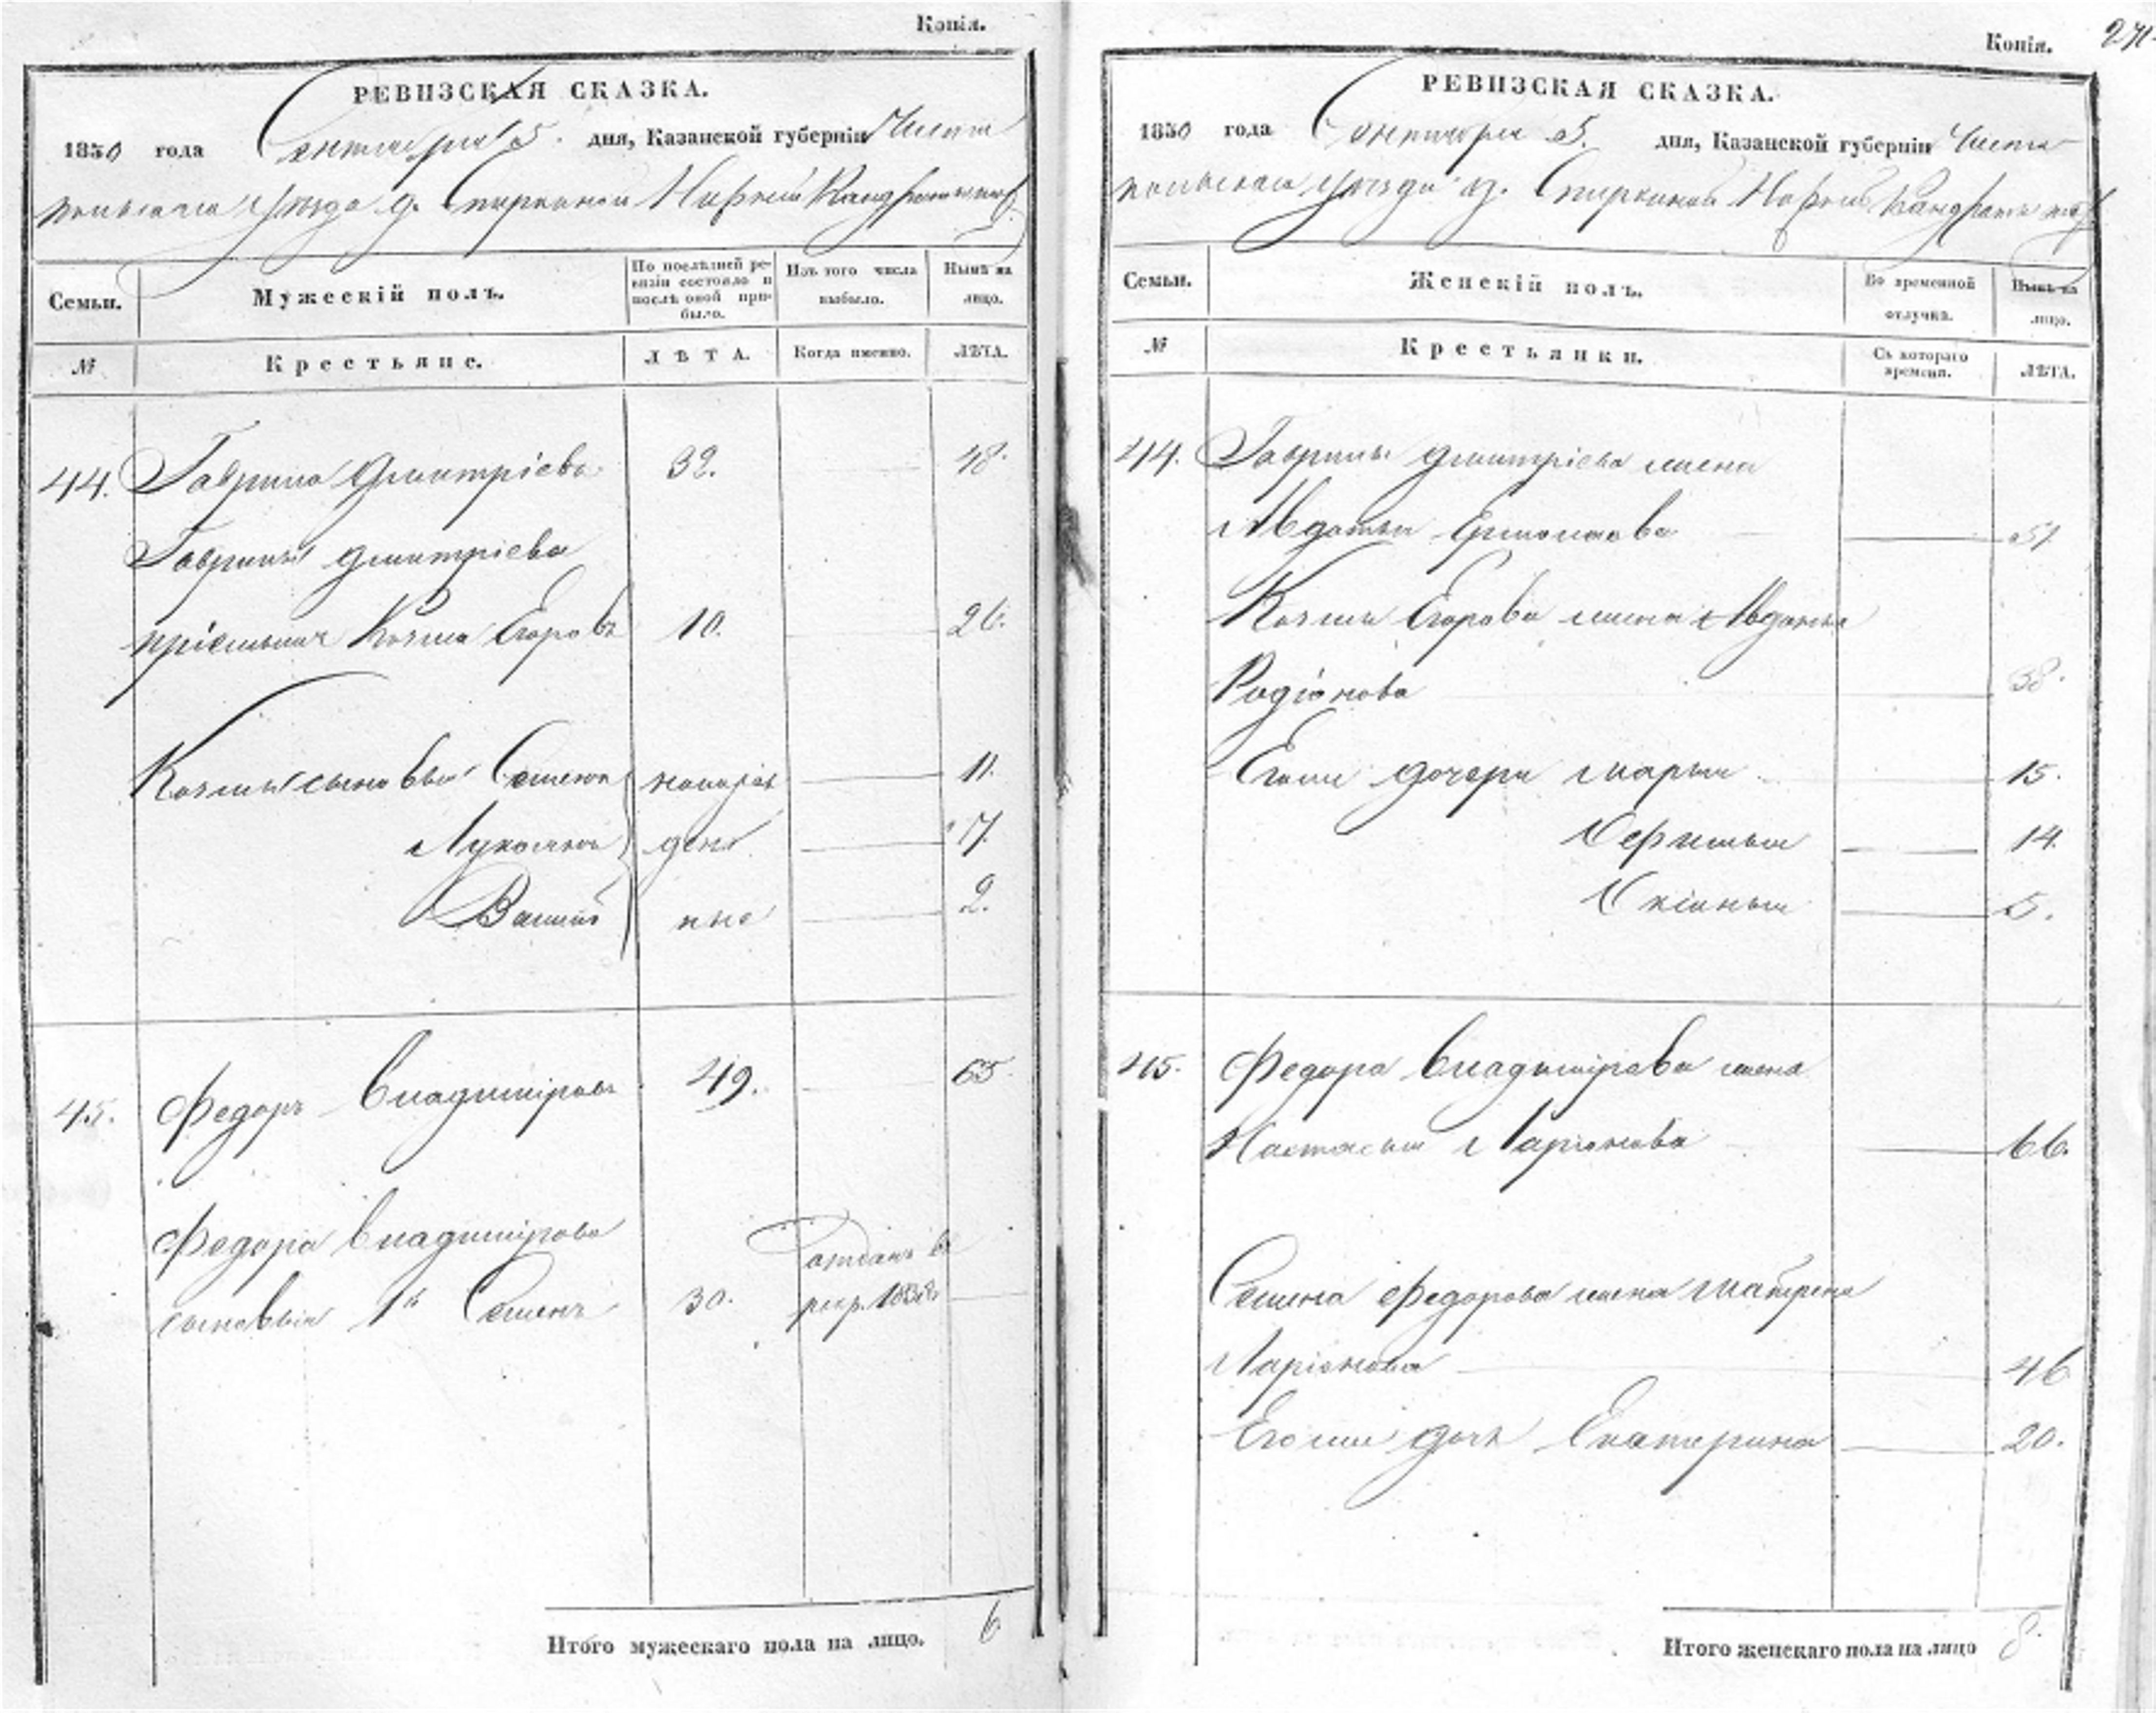 Копія.
РЕВИЗСКАЯ СКАЗКА.
1850 года Сентября 5. дня, Казанской губерніи Чисто
польскаго уѣзда д. Спиркиной
Семьи.
Мужескій полъ.
По послѣдней ре-
визіи состояло и
послѣ оной при-
было.
Изъ того числа
выбыло.
Нынѣ на
лицо.
№
Крестьяне.
ЛѢТА.
Когда именно.
ЛѢТА.
44. Гаврила Дмитріевъ 32. 48.
Гаврилы Дмитріева
пріемышъ Козма Егоровъ 10. 26.
Козмы сыновья Семенъ новорож 11.
Лукоянъ ден 7.
ные 2.
45. Федоръ Владиміровъ 49. 65.
Федора Владимірова
сыновья 1й Семенъ 30. отданъ въ
рекр. 1838
Итого мужескаго пола на лицо. 6
Копія.
РЕВИЗСКАЯ СКАЗКА.
1850 года Сентября 5. дня, Казанской губерніи Чисто
польскаго уѣзда д. Спиркиной
Семьи.
Женскій полъ.
Во временной
отлучкѣ.
Нынѣ на
лицо.
№
Крестьянки.
Съ котораго
времени.
ЛѢТА.
44. Гаврилы Дмитріева жена
Авдотья Ермолаева 51.
Козмы Егорова жена Авдотья
Родіонова 38.
Егоже дочери Марья 15.
14.
5.
45. Федора Владимірова жена
Настасья Ларіонова 66.
Семена Федорова жена Матрена
Ларіонова 46
Егоже дочь Екатерина 20.
Итого женскаго пола на лицо 8.